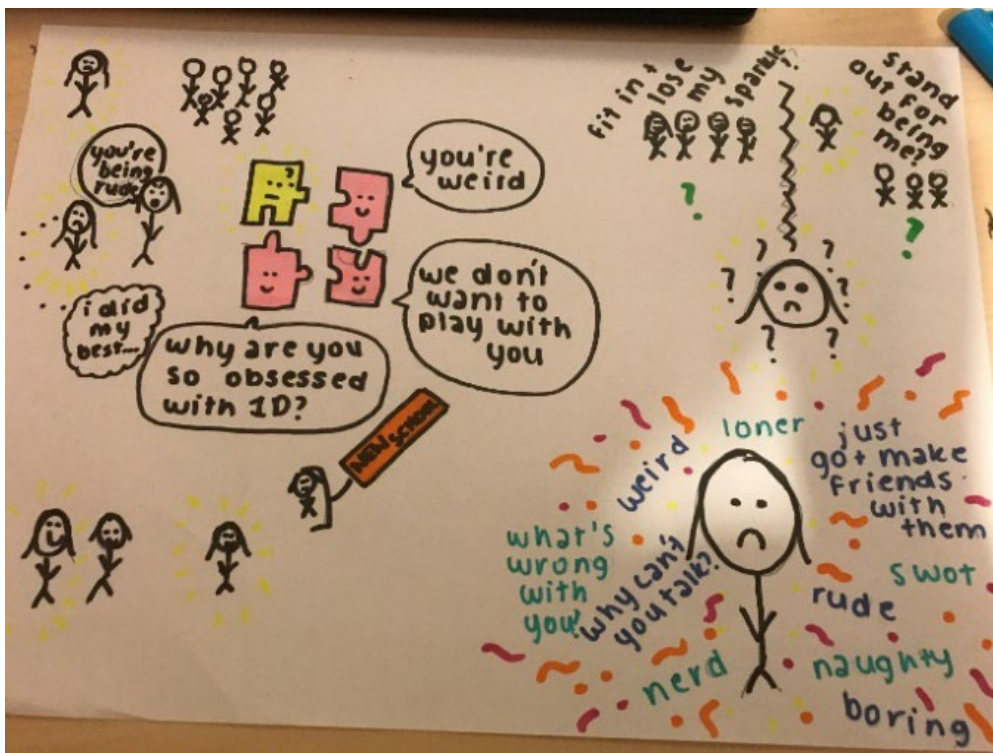 you're
being
rude
i did
my
best...
you're
weird
we don't
want to
play with
you
why are you
so obsessed
with 1D?
NEW SCHOOL
fit in +
lose
my
sparkle?
stand
out for
being
me?
?
?
?
?
?
?
?
?
?
loner
weird
just
got make
friends
with
them
what's
wrong
with
you?
why can't
you talk?
swot
rude
nerd
naughty
boring